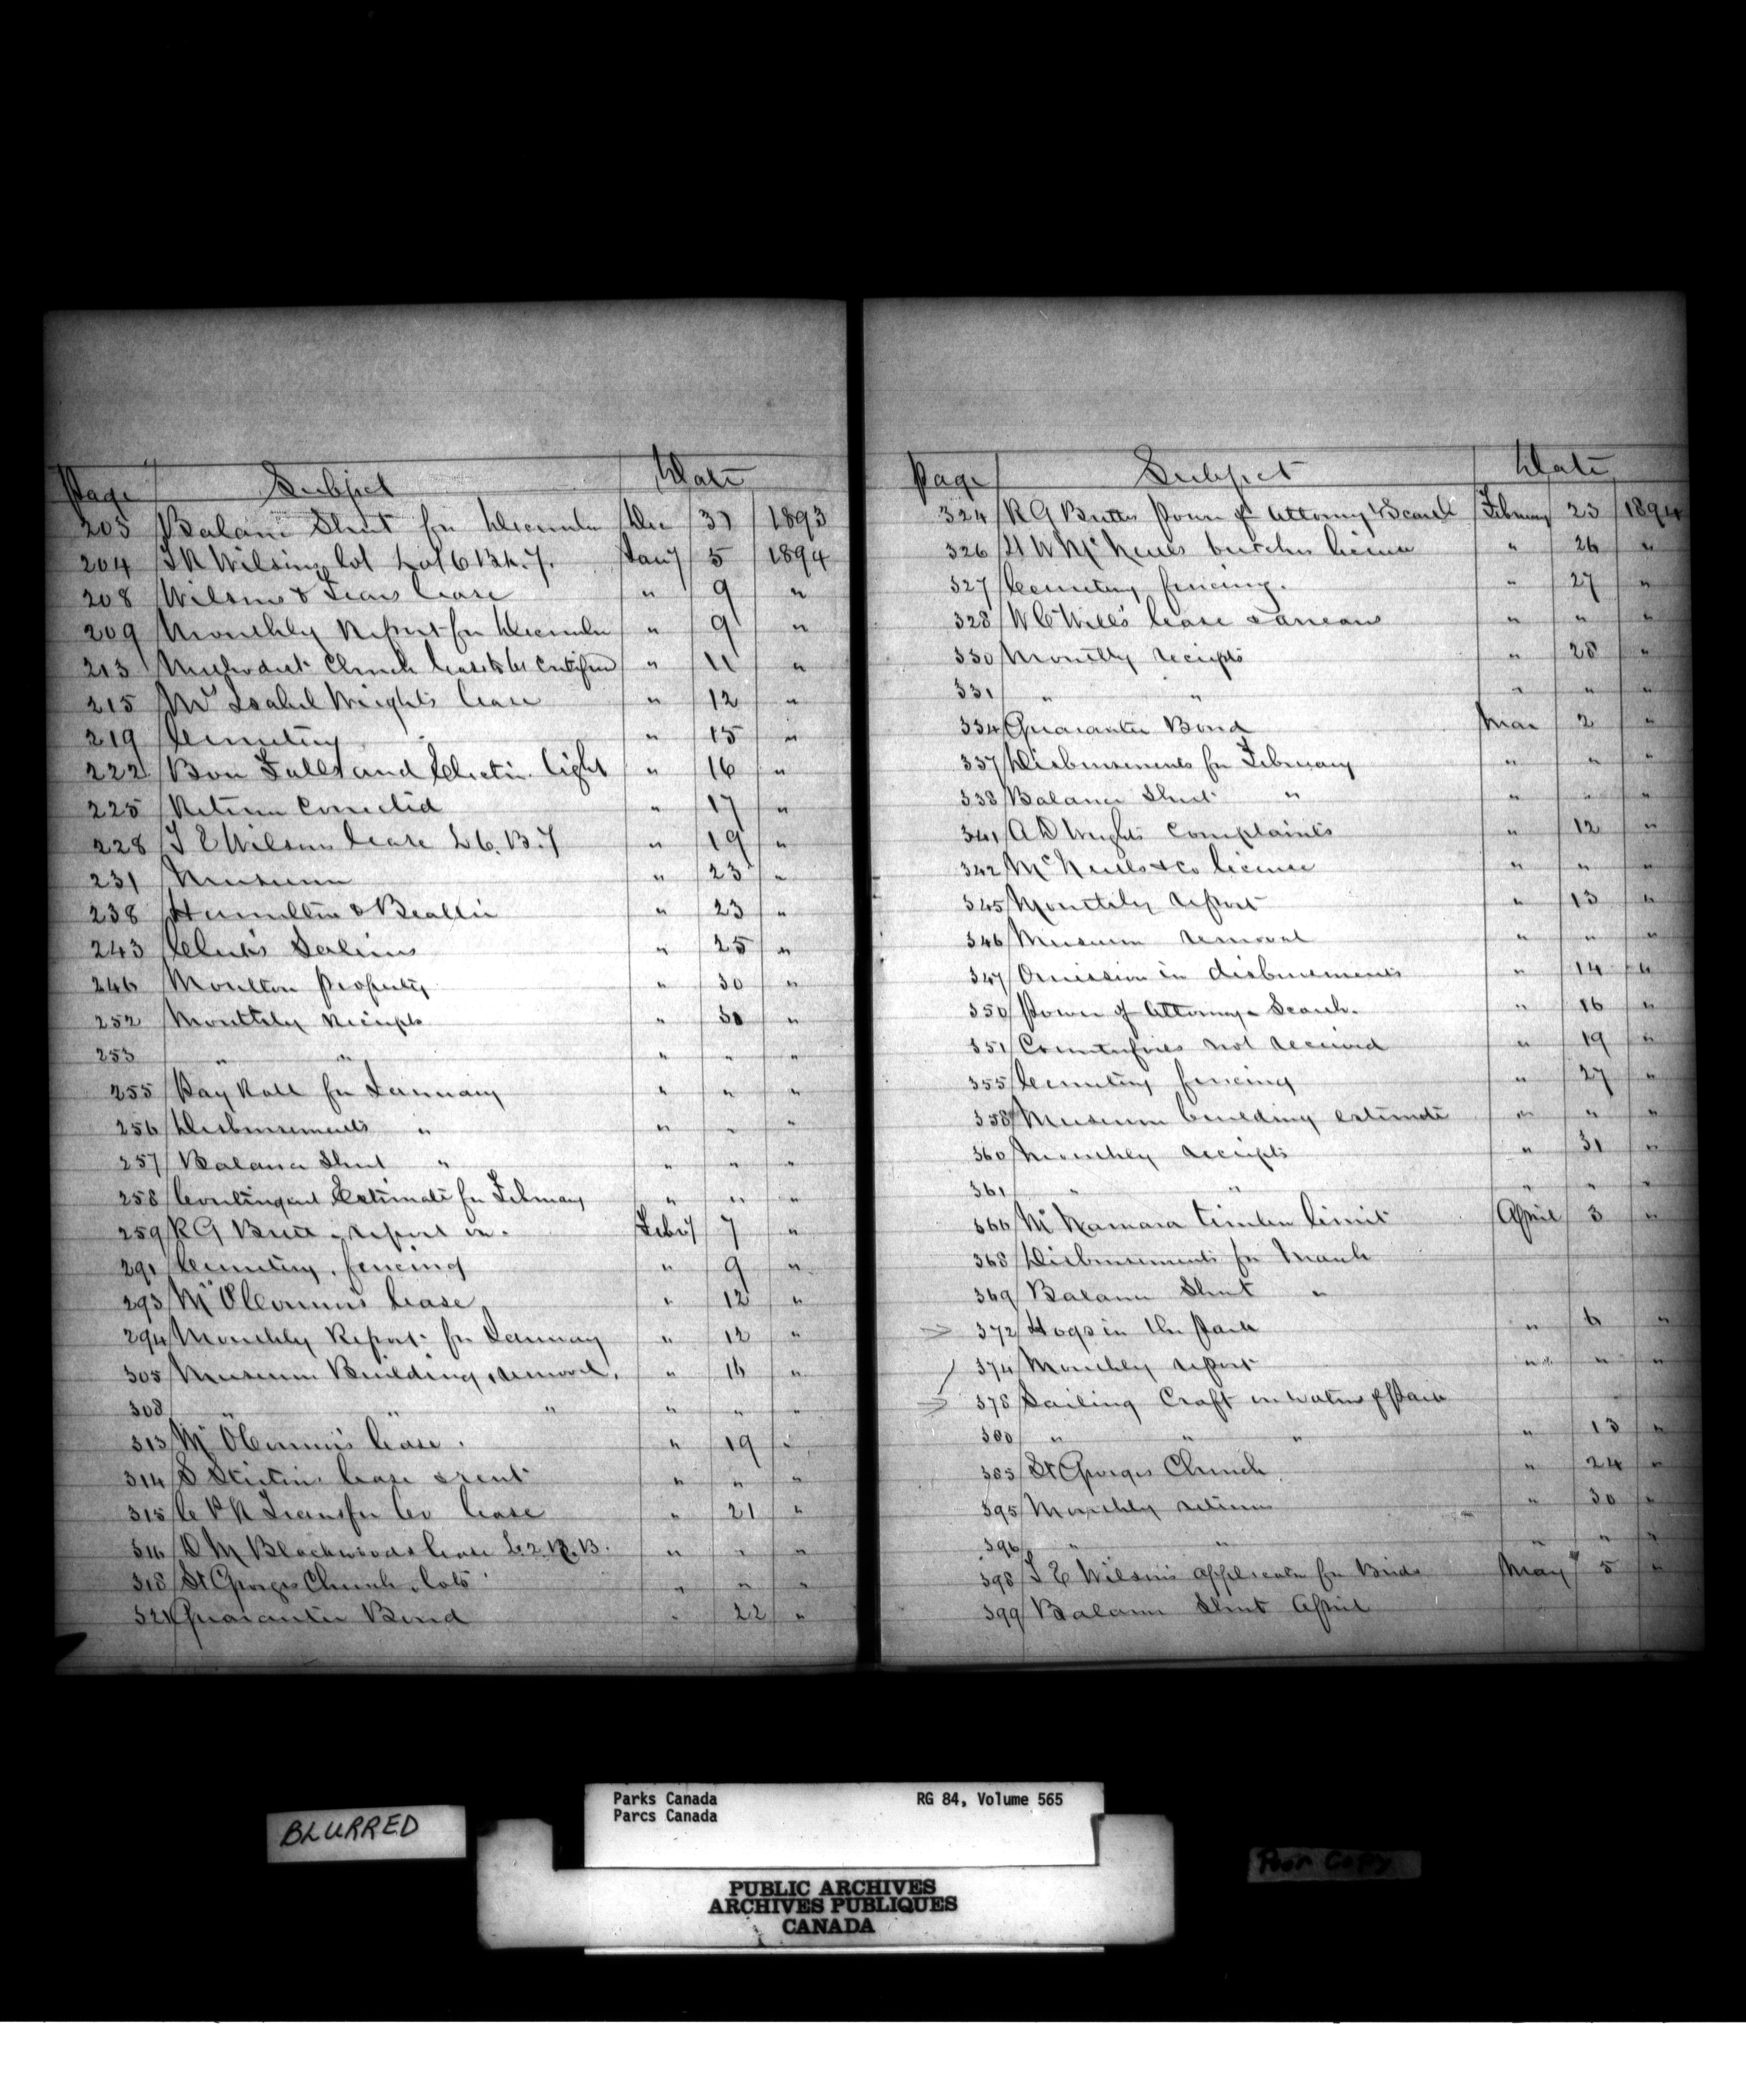 Page Subject Date
203 Balance Sheet for December Dec 31 1893
204 Wilsons lot Lot 6 Bk. 7. Jany 5 1894
208 Wilsons & lease " 9 "
209 Monthly Report for December " 9 "
213 Methodist Church lease to be " 11 "
215 Mrs Isabel Wright's lease " 12 "
219 Cemetery " 15 "
222 Bow Falls and Electric light " 16 "
225 Return Corrected " 17 "
228 T E Wilsons lease L 6. B. 7 " 19 "
231 Museum " 23 "
238 Hamilton & Beattie " 23 "
243 " 25 "
246 Moulton property " 30 "
252 Monthly Receipts " "
253 " " " " "
255 Pay Roll for January " " "
256 Disbursements " " " "
257 Balance Sheet " " " "
258 Contingent Estimate for February " " "
259 R G Brett report on. Feby 7 "
291 Cemetery. fencing " 9 "
293 Mr O'Connor's lease " 12 "
294 Monthly Report for January " 12 "
305 Museum Building, removal. " 16 "
308 " " " " " "
313 Mr O'Connor's lease. " 19 "
314 S lease & rent " " "
315 C P R Transfer Co lease " 21 "
316 D M Blackwoods lease L. 2. B. " " "
318 St Georges Church. lots " " "
321 Guarantee Bond " 22 "
Page Subject Date
324 R G Bretts Power of Attorney & Search February 23 1894
326 Mc Neills butcher license " 26 "
327 Cemetery fencing. " 27 "
328 W C Wills lease & arrears " " "
330 Monthly receipts " 28 "
331 " " " " "
334 Guarantee Bond Mar 2 "
337 Disbursements for February " " "
338 Balance Sheet " " " "
341 A D Wrights Complaints " 12 "
342 Mc Neills & Co license " " "
345 Monthly report " 13 "
346 Museum removal " " "
347 Omission in disbursements " 14 "
350 Power of Attorney Search. " 16 "
351 Counterfoils not received " 19 "
355 Cemetery fencing " 27 "
358 Museum building estimate " " "
360 Monthly receipts " 31 "
361 " " " " "
366 Mc Namara timber limit April 3 "
368 Disbursements for March
369 Balance Sheet "
372 Hogs in the Park " 6 "
374 Monthly report " " "
378 Sailing Craft on waters of Park
380 " " " " 13 "
385 St Georges Church " 24 "
395 Monthly returns " 30 "
396 " " " " "
398 T E Wilson's application for Birds May 5 "
399 Balance Sheet April
BLURRED
Parks Canada RG 84, Volume 565
Parcs Canada
PUBLIC ARCHIVES
ARCHIVES PUBLIQUES
CANADA
Poor Copy